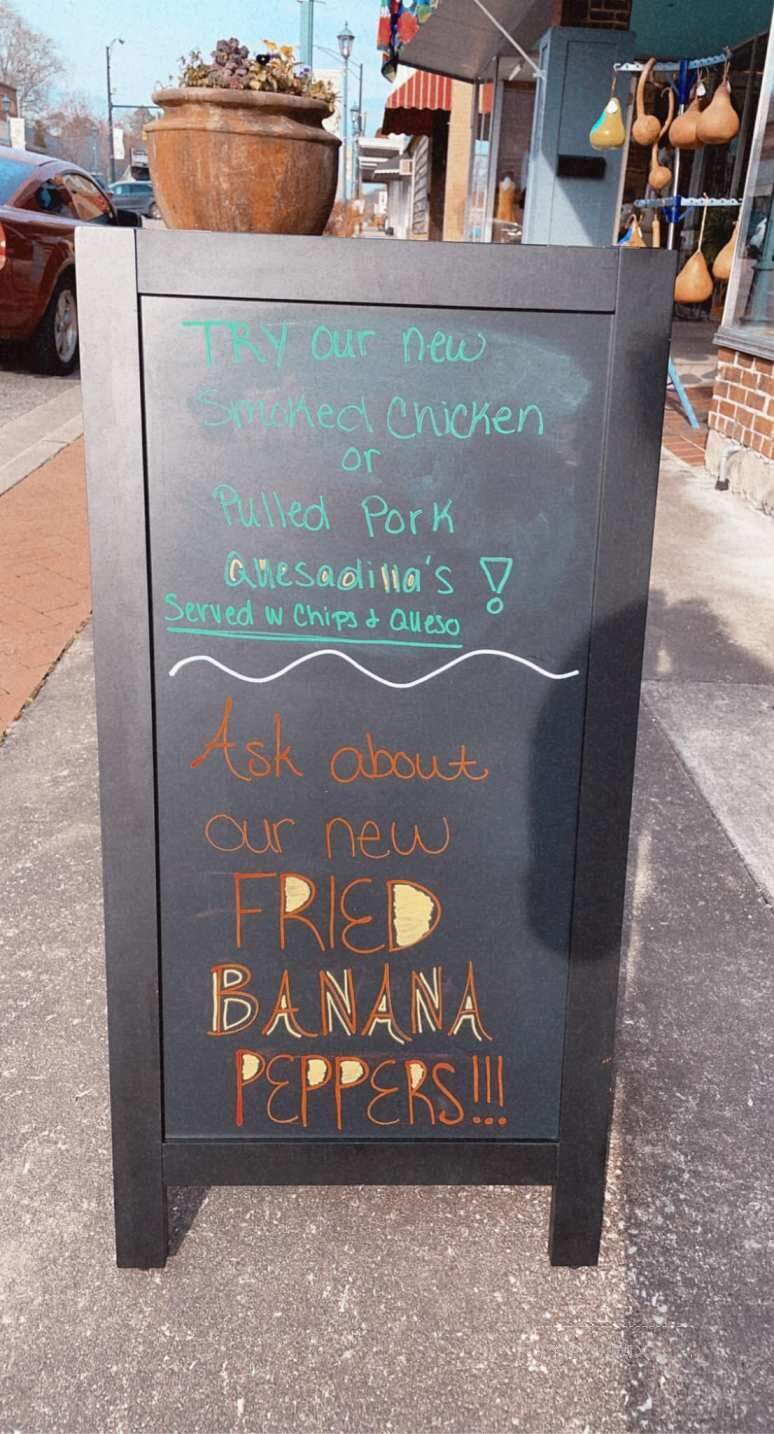 TRY our new
Smoked Chicken
or
Pulled Pork
Quesadilla's !
Served w Chips & Queso
Ask about
our new
FRIED
BANANA
PEPPERS!!!